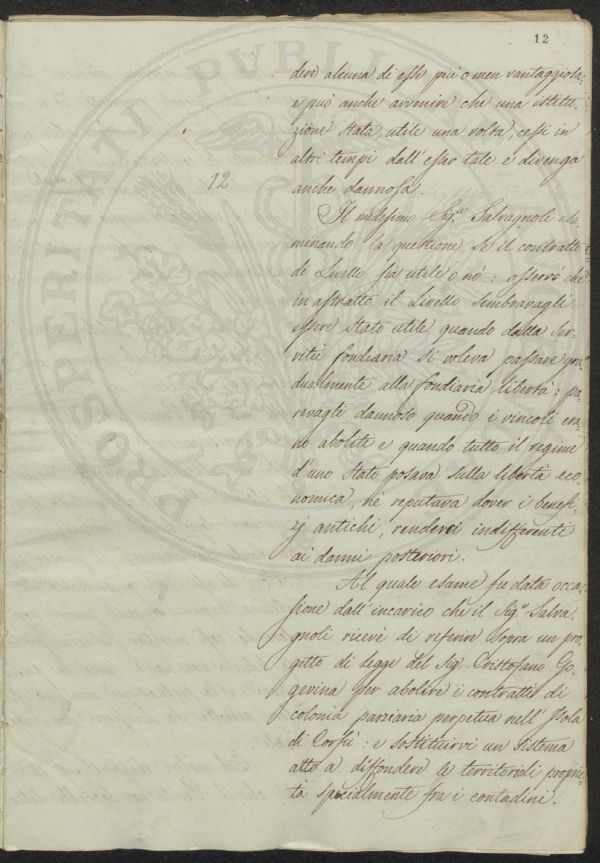 12
deve alcuna di esse più o men vantaggiosa
e può anche avvenire che una istitu-
zione stata utile una volta, cessi in
altri tempi dall'esser tale e divenga
anche dannosa.
12
Il medesimo Sig.re Salvagnoli esa-
minando la questione se il contratto
di Livello sia utile o nò: osservò che
in astratto il Livello sembravagli
essere stato utile quando dalla Ser-
vitù fondiaria si voleva passare gra-
dualmente alla fondiaria libertà; pa-
revagli dannoso quando i vincoli era-
no aboliti e quando tutto il regime
d'uno Stato posava sulla libertà eco-
nomica, nè reputava dover i benefi-
zj antichi, renderci indifferenti
ai danni posteriori.
Al quale esame fu data occa-
sione dall'incarico che il Sig.re Salva-
gnoli ricevè di referire sopra un pro-
getto di legge del Sig. Cristofano Go-
gevina per abolire i contratti di
colonia parziaria perpetua nell'Isola
di Corfù: e sostituirvi un sistema
atto a diffondere le territoriali proprie-
tà specialmente fra i contadini.
PROSPERITATI PUBLICAE